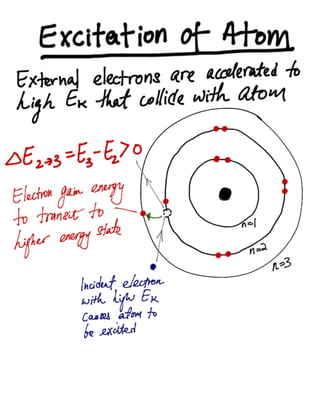 Excitation of Atom
External electrons are accelerated to
high Eₖ that collide with atom
ΔE₂→₃ = E₃ - E₂ > 0
Electron gain energy
to transit to
higher energy state
n=1
n=2
n=3
Incident electron
with high Eₖ
causes atom to
be excited